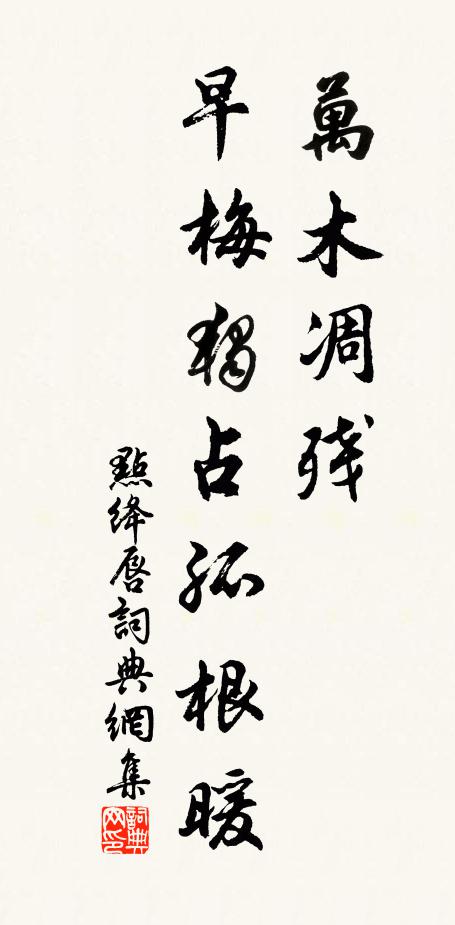 萬木凋残
早梅獨占孤根暖
點绛唇詞典網集
詞典网印